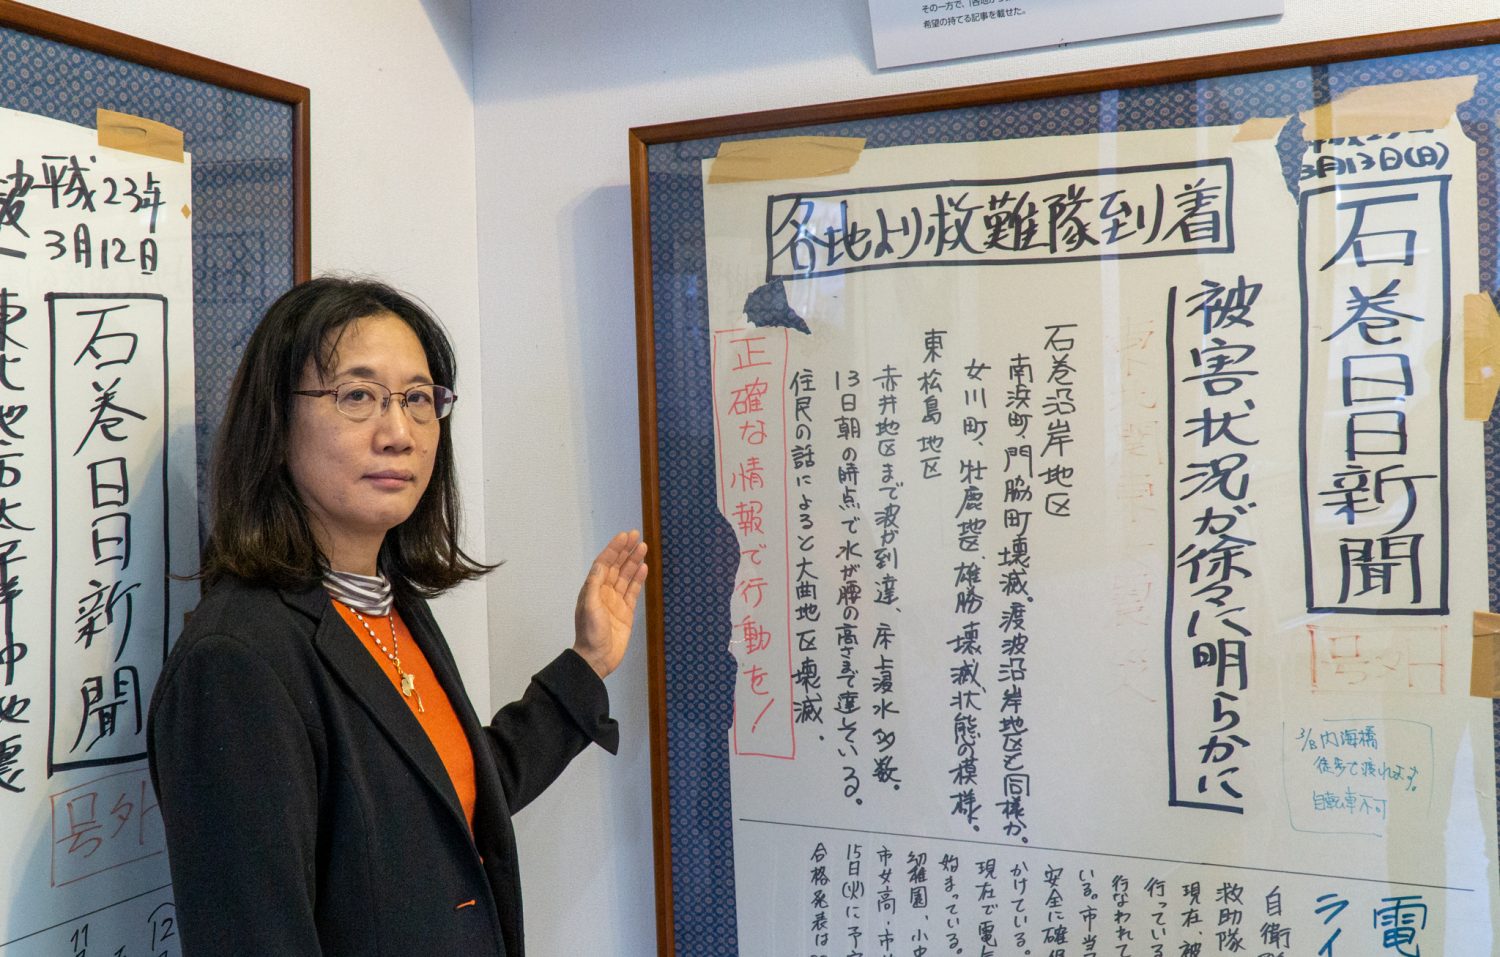 その一方で、「各地から
希望の持てる記事を載せた。
3月13日(日)
石巻日日新聞
号外
3/13内海橋
徒歩で渡れます。
自転車不可
各地より救難隊到着
被害状況が徐々に明らかに
石巻沿岸地区
南浜町、門脇町壊滅。渡波沿岸地区も同様か。
女川町、牡鹿地区、雄勝壊滅状態の模様。
東松島地区
赤井地区まで波が到達、床上浸水多数。
13日朝の時点で水が腰の高さまで達している。
住民の話によると大曲地区壊滅、
正確な情報で行動を!
電
ライ
自衛
救助隊
現在、被
行っている
行なわれて
いる。市当
安全に確保
かけている。
現在で電
始まっている。
幼稚園、小中
市女高・市
15日(火)に予定
合格発表は
平成23年
3月12日
石巻日日新聞
号外
東北地方太平洋沖地震